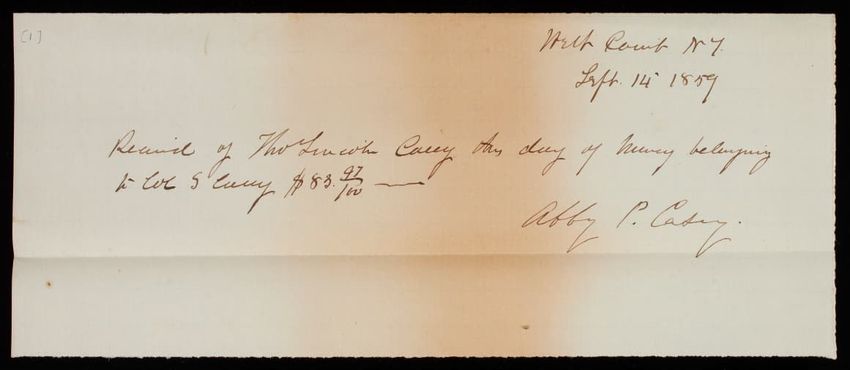 [1]
West Point N.Y.
Sept. 14 1859
Received of Thos Lincoln Casey this day of Money belonging
to Col S Casey $83. 97/100 —
Abby P. Casey.